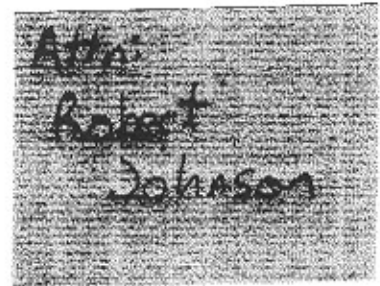 Attn:
Robert
Johnson